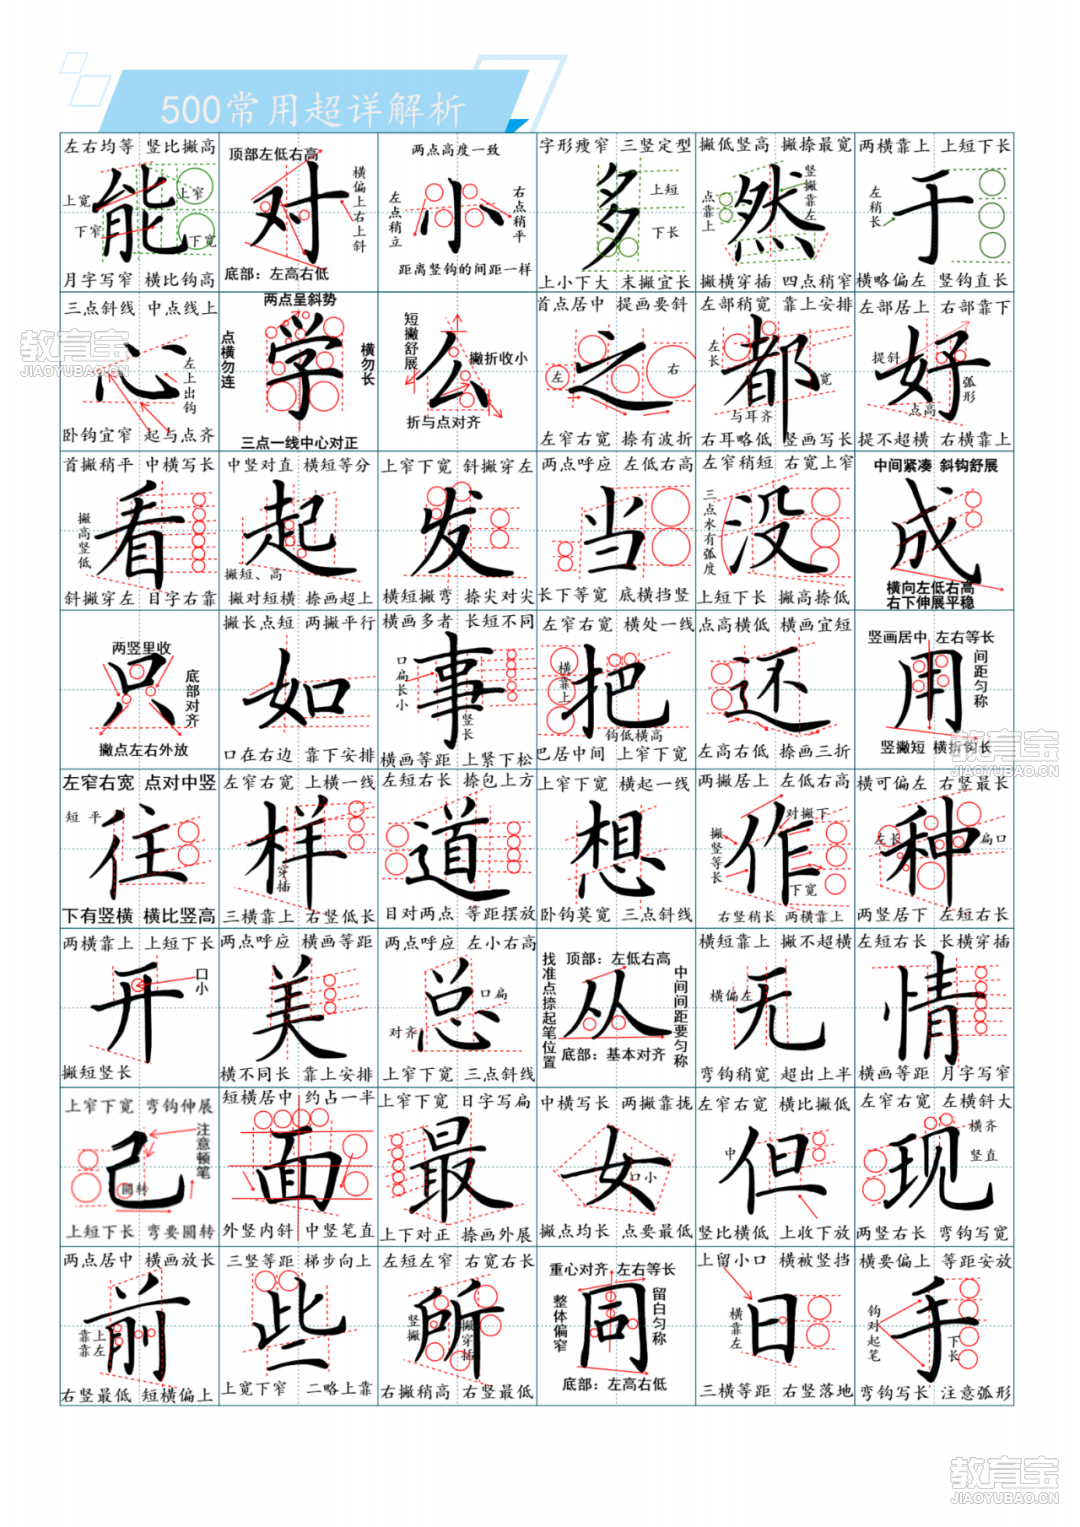 500常用超详解析
左右均等 竖比撇高
能
上宽
上窄
下窄
下宽
月字写窄 横比钩高
顶部左低右高
对
横偏上右上斜
底部：左高右低
两点高度一致
小
左点稍立
右点稍平
距离竖钩的间距一样
字形瘦窄 三竖定型
多
上短
下长
上小下大 末撇宜长
撇低竖高 撇捺最宽
然
点靠上
竖撇靠左
撇横穿插 四点稍窄
两横靠上 上短下长
于
左稍长
横略偏左 竖钩直长
三点斜线 中点线上
心
左上出钩
卧钩宜窄 起与点齐
两点呈斜势
学
点横勿连
横勿长
三点一线中心对正
短撇舒展
么
撇折收小
折与点对齐
首点居中 提画要斜
之
左
右
左窄右宽 捺有波折
左部稍宽 靠上安排
都
左长
宽
与耳齐
右耳略低 竖画写长
左部居上 右部靠下
好
提斜
弧形
点高
提不超横 右横靠上
首撇稍平 中横写长
看
撇高竖低
斜撇穿左 目字右靠
中竖对直 横短等分
起
撇短、高
撇对短横 捺画超上
上窄下宽 斜撇穿左
发
横短撇弯 捺尖对尖
两点呼应 左低右高
当
长下等宽 底横挡竖
左窄稍短 右宽上窄
没
三点水有弧度
上短下长 撇高捺低
中间紧凑 斜钩舒展
成
横向左低右高
右下伸展平稳
两竖里收
只
底部对齐
撇点左右外放
撇长点短 两撇平行
如
口在右边 靠下安排
横画多者 长短不同
事
口扁长小
竖长
横画等距 上紧下松
左窄右宽 横处一线
把
横靠上
钩低横高
巴居中间 上窄下宽
点高横低 横画宜短
还
左高右低 捺画三折
竖画居中 左右等长
用
间距匀称
竖撇短 横折钩长
左窄右宽 点对中竖
住
短 平
下有竖横 横比竖高
左窄右宽 上横一线
样
穿插
三横靠上 右竖低长
左短右长 捺包上方
道
目对两点 等距摆放
上窄下宽 横起一线
想
卧钩莫宽 三点斜线
两撇居上 左低右高
作
对撇下
撇竖等长
下宽
右竖稍长 两横靠上
横可偏左 右竖最长
种
左长
扁口
两竖居下 左短右长
两横靠上 上短下长
开
口小
撇短竖长
两点呼应 横画等距
美
横不同长 靠上安排
两点呼应 左小右高
总
口扁
对齐
上窄下宽 三点斜线
顶部：左低右高
从
找准点捺起笔位置
中间间距要匀称
底部：基本对齐
横短靠上 撇不超横
无
横偏左
弯钩稍宽 超出上半
左短右长 长横穿插
情
横画等距 月字写窄
上窄下宽 弯钩伸展
己
注意顿笔
圆转
上短下长 弯要圆转
短横居中 约占一半
面
外竖内斜 中竖笔直
上窄下宽 日字写扁
最
上下对正 捺画外展
中横写长 两撇靠拢
女
口小
撇点均长 点要最低
左窄右宽 横比撇低
但
中
竖比横低 上收下放
左窄右宽 左横斜大
现
横齐
竖直
两竖右长 弯钩写宽
两点居中 横画放长
前
靠上靠左
右竖最低 短横偏上
三竖等距 梯步向上
些
上宽下窄 二略上靠
左短左窄 右宽右长
所
竖撇
撇穿插
右撇稍高 右竖最低
重心对齐 左右等长
同
整体偏窄
留白匀称
底部：左高右低
上留小口 横被竖挡
日
横靠左
三横等距 右竖落地
横要偏上 等距安放
手
钩对起笔
下长
弯钩写长 注意弧形
教育宝
JIAOYUBAO.CN
教育宝
JIAOYUBAO.CN
教育宝
JIAOYUBAO.CN